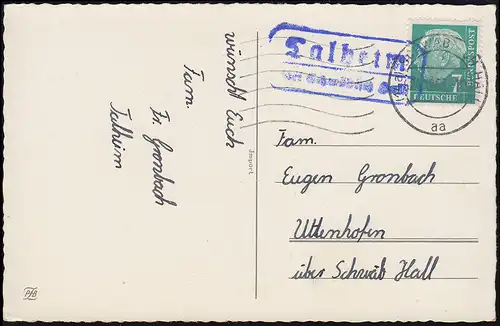 wünscht Euch
Fam.
Fr. Gronbach
Talheim
Import
PhB
Talheim
über Schwäbisch
7
DEUTSCHE
BUNDESPOST
aa
Fam.
Eugen Gronbach
Uttenhofen
über Schwäb Hall